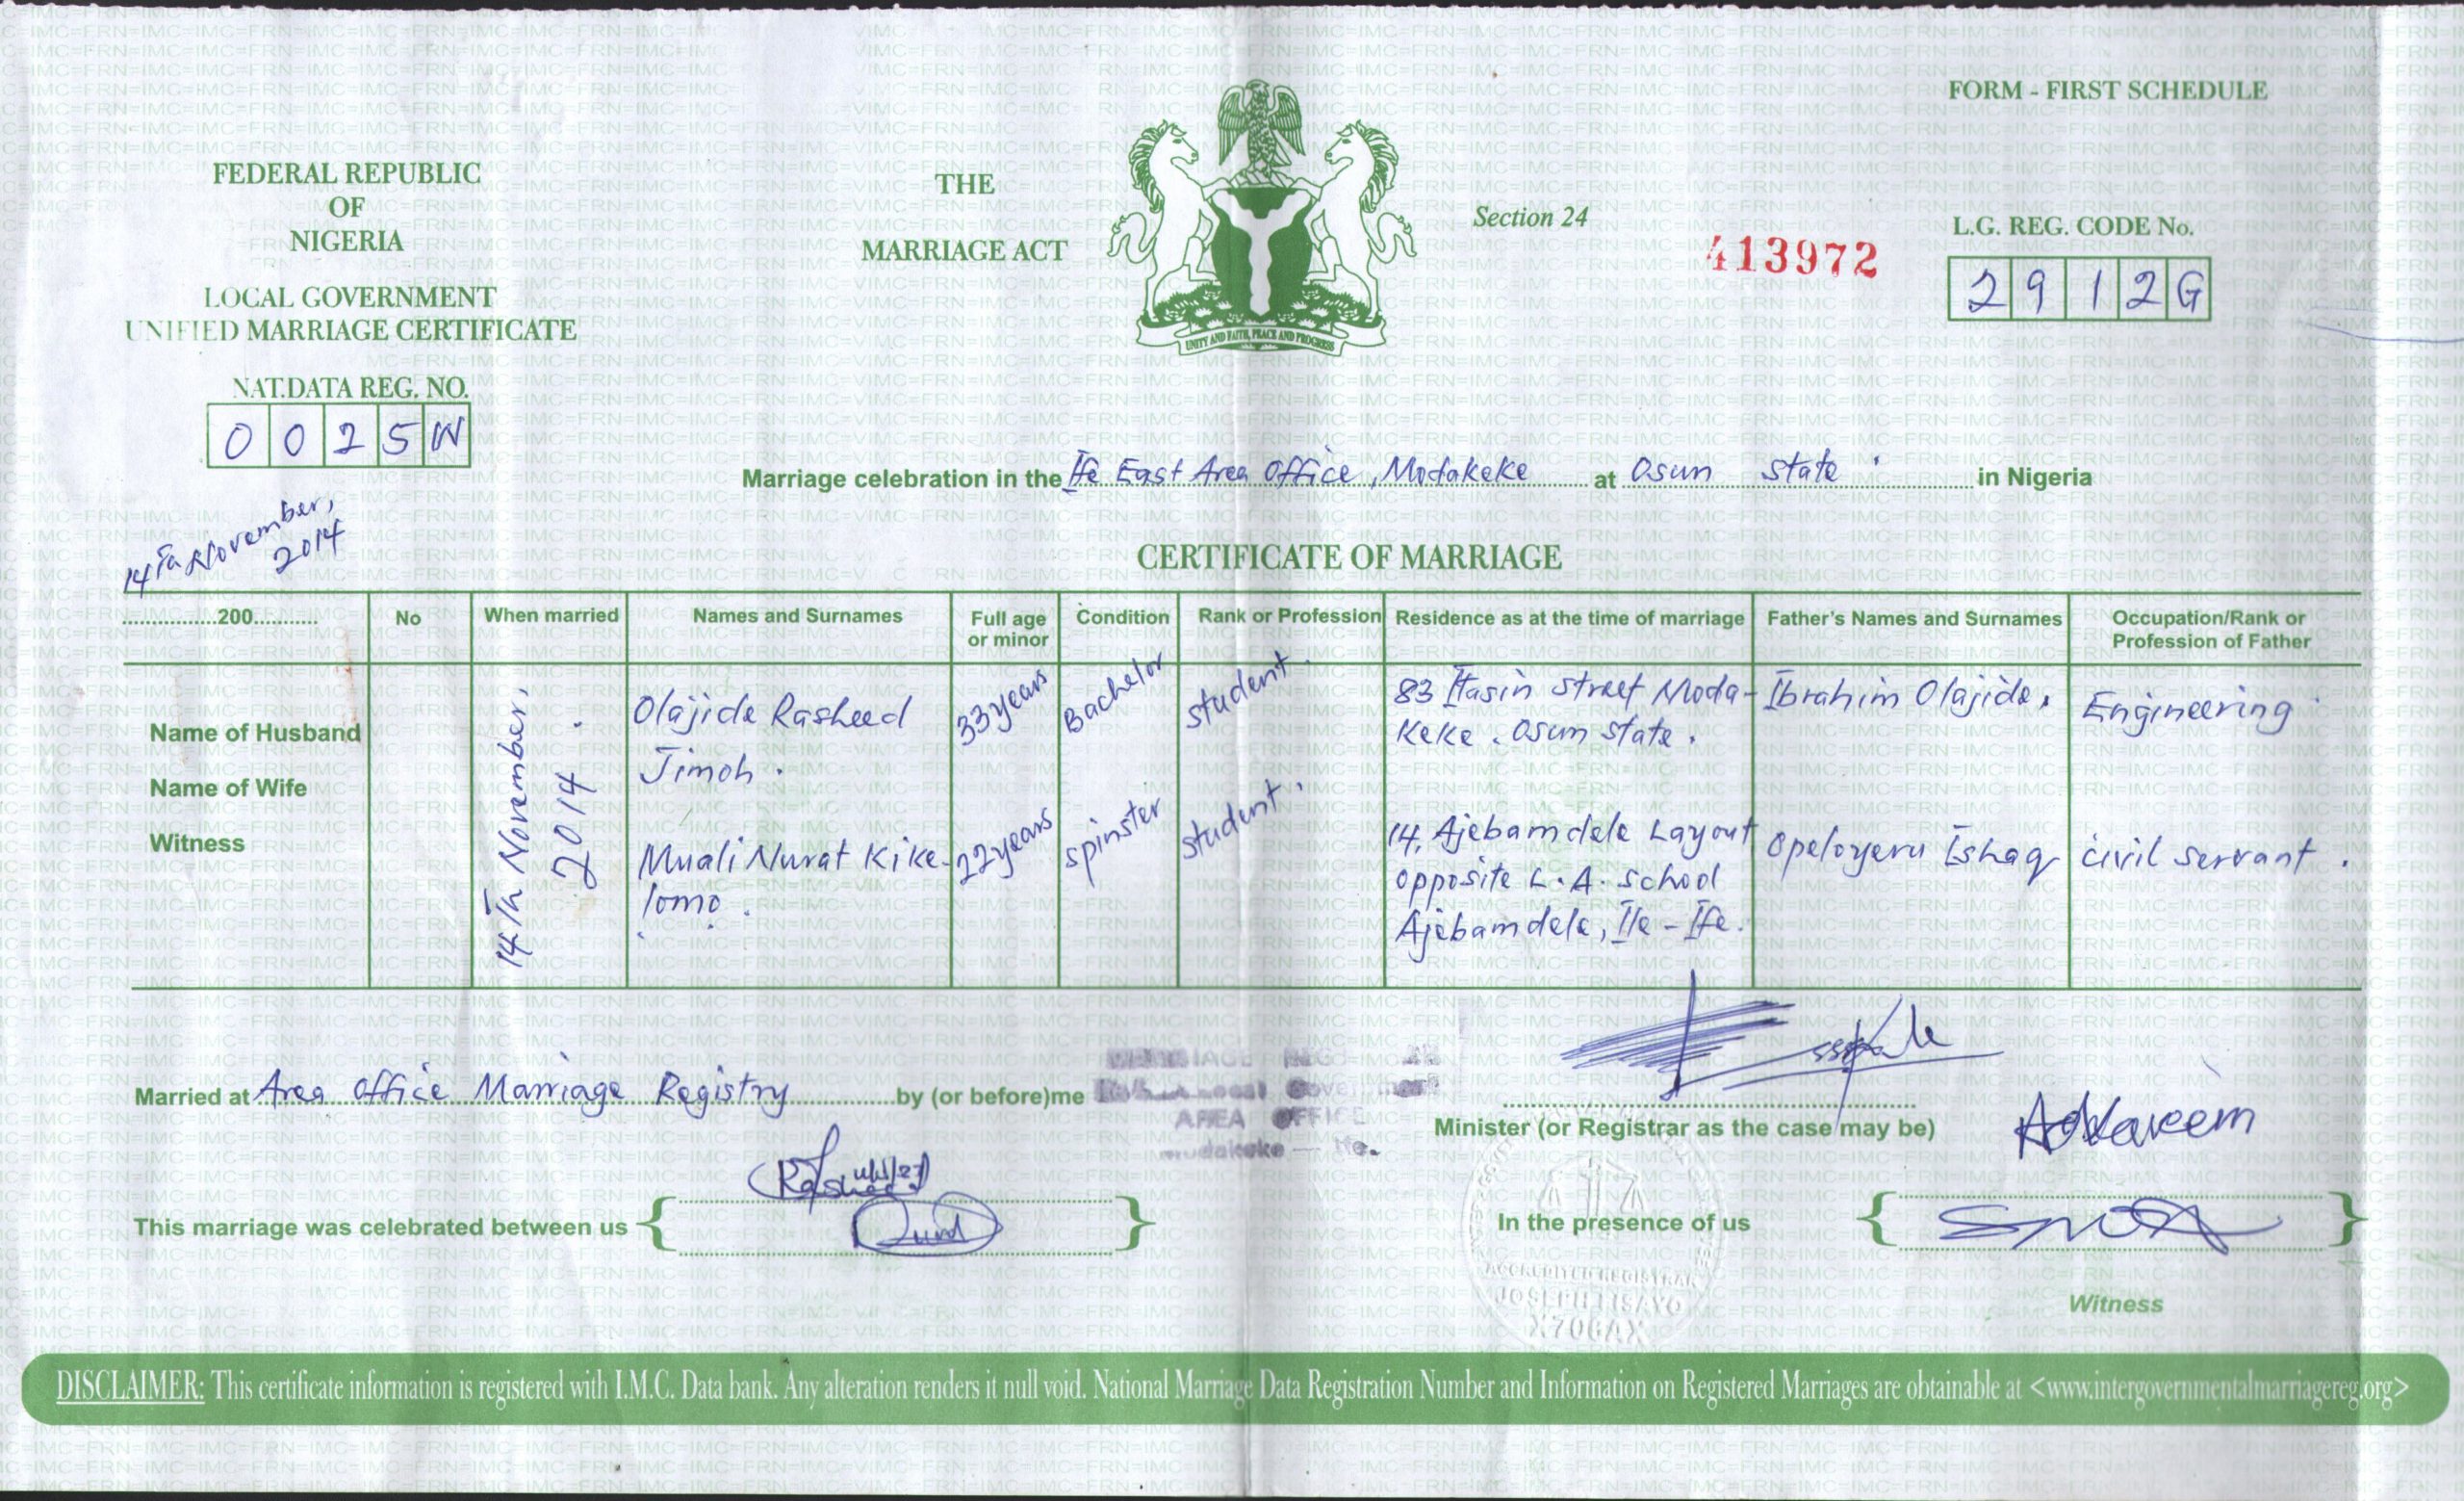 FORM - FIRST SCHEDULE
FEDERAL REPUBLIC
OF
NIGERIA
LOCAL GOVERNMENT
UNIFIED MARRIAGE CERTIFICATE
NAT.DATA REG. NO.
0 0 2 5 W
THE
MARRIAGE ACT
UNITY AND FAITH, PEACE AND PROGRESS
Section 24
413972
L.G. REG. CODE No.
2 9 1 2 G
Marriage celebration in the Ife East Area Office, Modakeke at Osun State in Nigeria
14th November,
2014
CERTIFICATE OF MARRIAGE
200 No When married Names and Surnames Full age or minor Condition Rank or Profession Residence as at the time of marriage Father's Names and Surnames Occupation/Rank or Profession of Father
Name of Husband
Name of Wife
Witness
14th November.
2014
Olajide Rasheed
Jimoh.
33 years
Bachelor
student.
83 Itasin Street Moda-
keke. Osun State.
Ibrahim Olajide.
Engineering
Muali Nurat Kike-
lomo.
22 years
spinster
student.
14, Ajebamdele Layout
opposite L.A. School
Ajebamdele, Ile-Ife.
Opeloyeru Ishaq
civil servant.
Married at Area Office Marriage Registry by (or before)me
AREA OFFICE
Minister (or Registrar as the case may be)
This marriage was celebrated between us
In the presence of us
ACCREDITED REGISTRAR
X706AX
Witness
DISCLAIMER: This certificate information is registered with I.M.C. Data bank. Any alteration renders it null void. National Marriage Data Registration Number and Information on Registered Marriages are obtainable at <www.intergovernmentalmarriagereg.org>